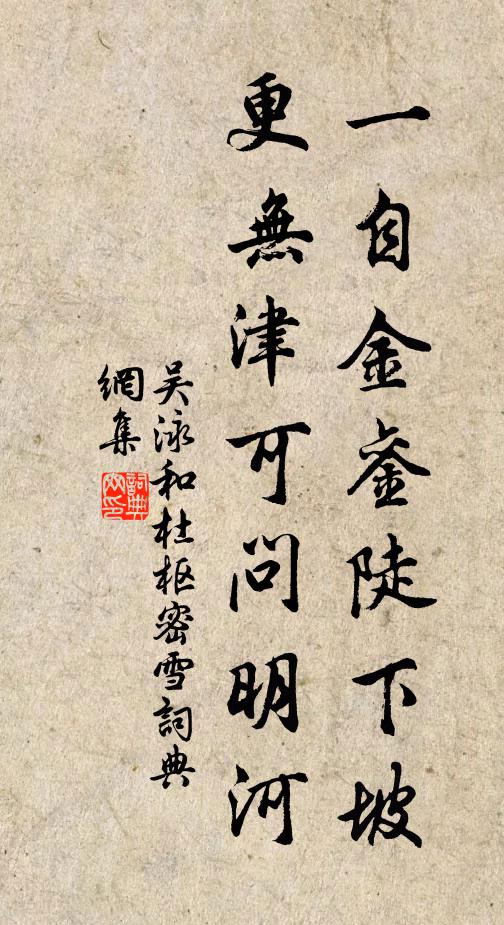 一自金銮陡下坡
更無津可問明河
吴泳和杜枢密雪詞典
網集
詞典
网印